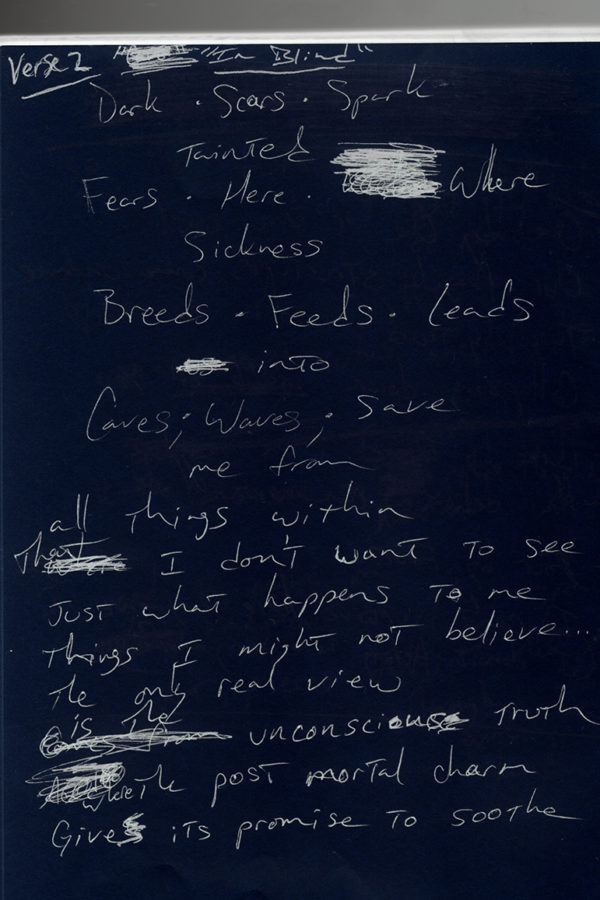 Verse 2 "In Blind"
Dark . Scars . Spark
Tainted
Fears . Here . Where
Sickness
Breeds . Feeds . Leads
into
Caves; Waves; Save
me from
all things within
That I don't want to see
Just what happens to me
Things I might not believe...
The only real view
is the unconscious truth
where the post mortal charm
Gives its promise to soothe